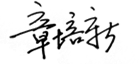 章培新